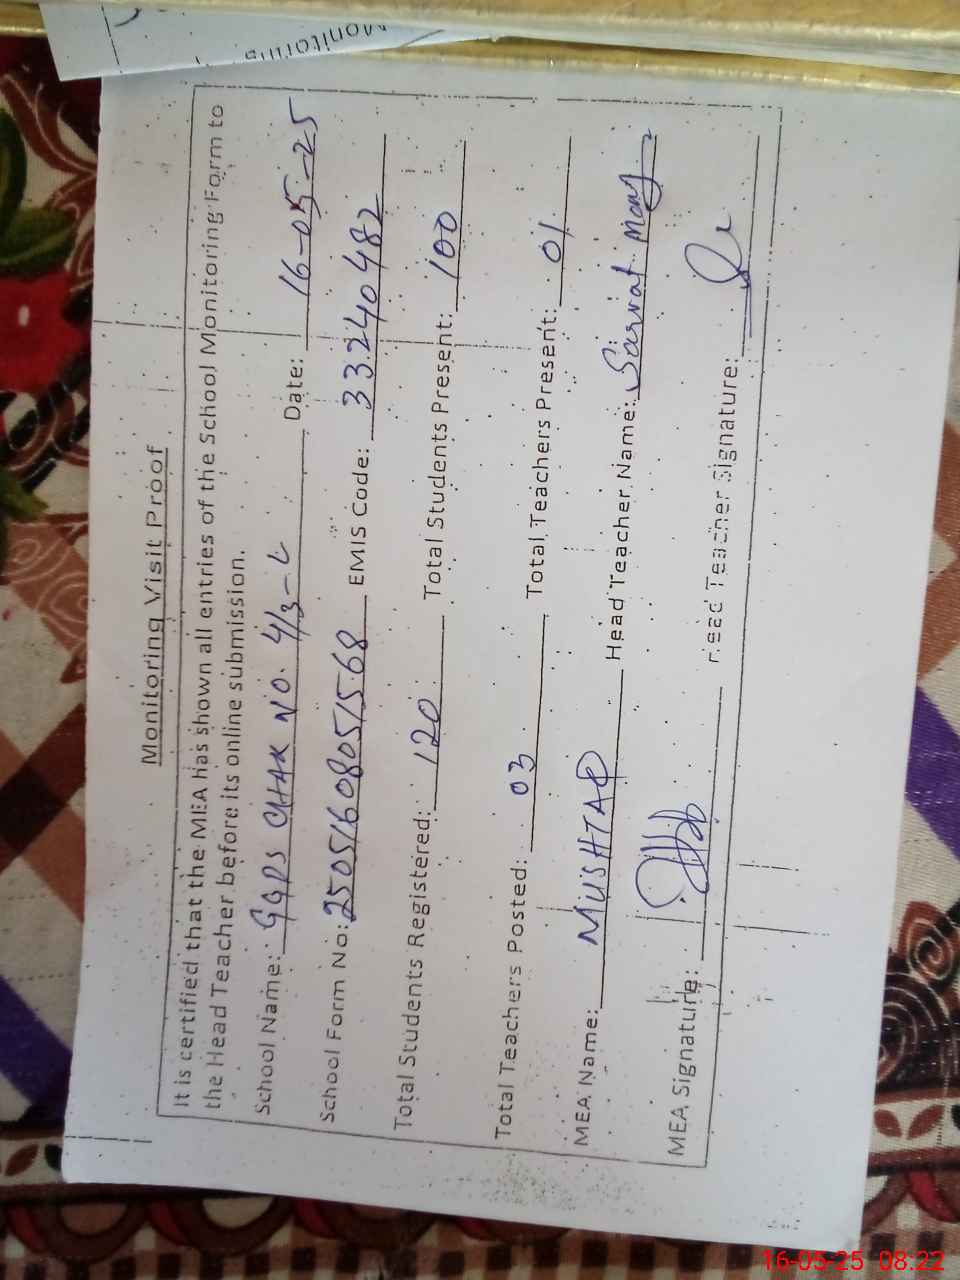 Monitoring
Monitoring Visit Proof
It is certified that the MEA has shown all entries of the School Monitoring Form to
the Head Teacher before its online submission.
School Name: GGPS CHAK NO. 4/3-L Date: 16-05-25
School Form No: 25051608051568 EMIS Code: 33240482
Total Students Registered: 120 Total Students Present: 100
Total Teachers Posted: 03 Total Teachers Present: 01
MEA Name: MUSHTAQ Head Teacher Name:
MEA Signature: Head Teacher Signature:
16-05-25 08:22